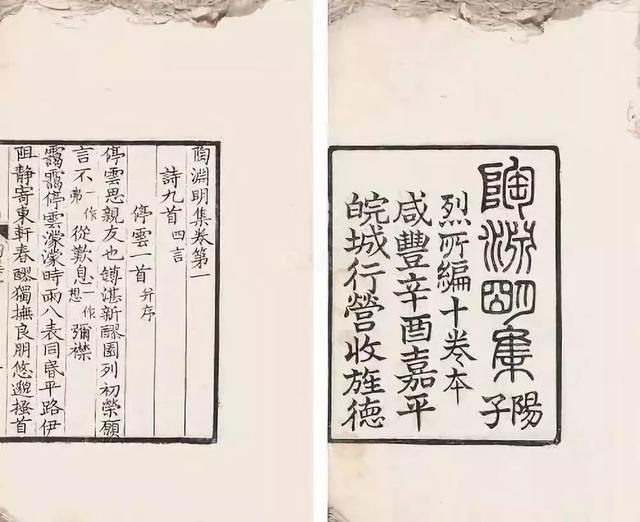 陶淵明集陽子
烈所編十卷本
咸豐辛酉嘉平
皖城行營收旌德
陶淵明集卷第一
詩九首 四言
停雲一首 并序
停雲思親友也罇湛新醪園列初榮願
言不一作弗從歎息一作想彌襟
靄靄停雲濛濛時雨八表同昏平路伊
阻靜寄東軒春醪獨撫良朋悠邈搔首